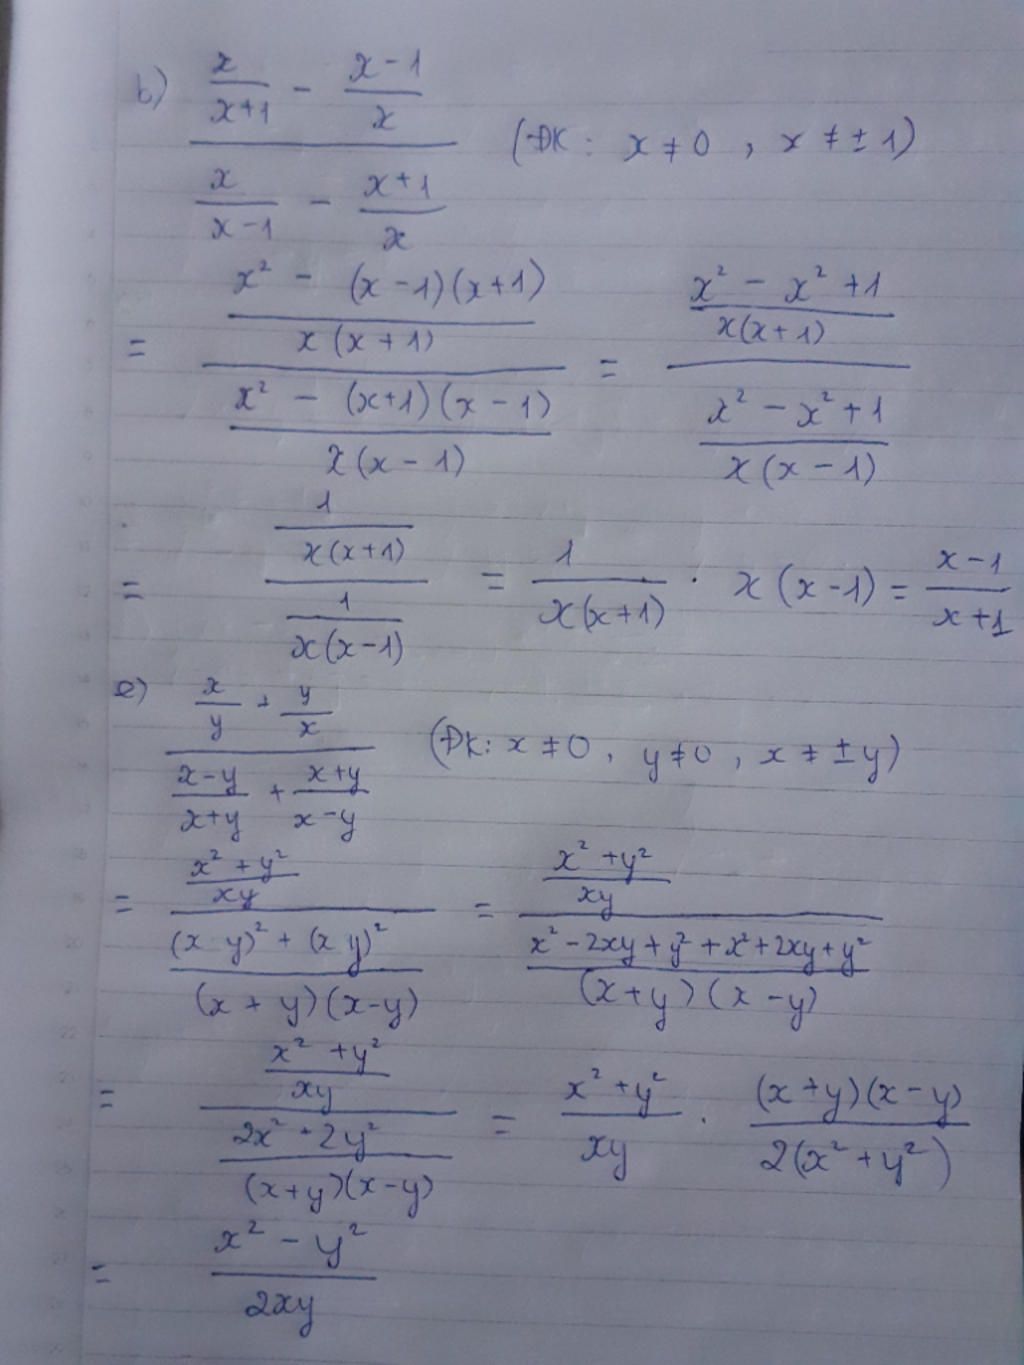 b) (x/(x+1) - (x-1)/x) / (x/(x-1) - (x+1)/x) (ĐK: x ≠ 0, x ≠ ± 1)
= ((x² - (x-1)(x+1))/(x(x+1))) / ((x² - (x+1)(x-1))/(x(x-1))) = ((x² - x² + 1)/(x(x+1))) / ((x² - x² + 1)/(x(x-1)))
= (1/(x(x+1))) / (1/(x(x-1))) = 1/(x(x+1)) . x(x-1) = (x-1)/(x+1)
e) (x/y + y/x) / ((x-y)/(x+y) + (x+y)/(x-y)) (ĐK: x ≠ 0, y ≠ 0, x ≠ ± y)
= ((x² + y²)/(xy)) / (((x y)² + (x y)²)/((x+y)(x-y))) = ((x² + y²)/(xy)) / ((x² - 2xy + y² + x² + 2xy + y²)/((x+y)(x-y)))
= ((x² + y²)/(xy)) / ((2x² + 2y²)/((x+y)(x-y))) = (x² + y²)/(xy) . ((x+y)(x-y))/(2(x² + y²))
= (x² - y²)/(2xy)